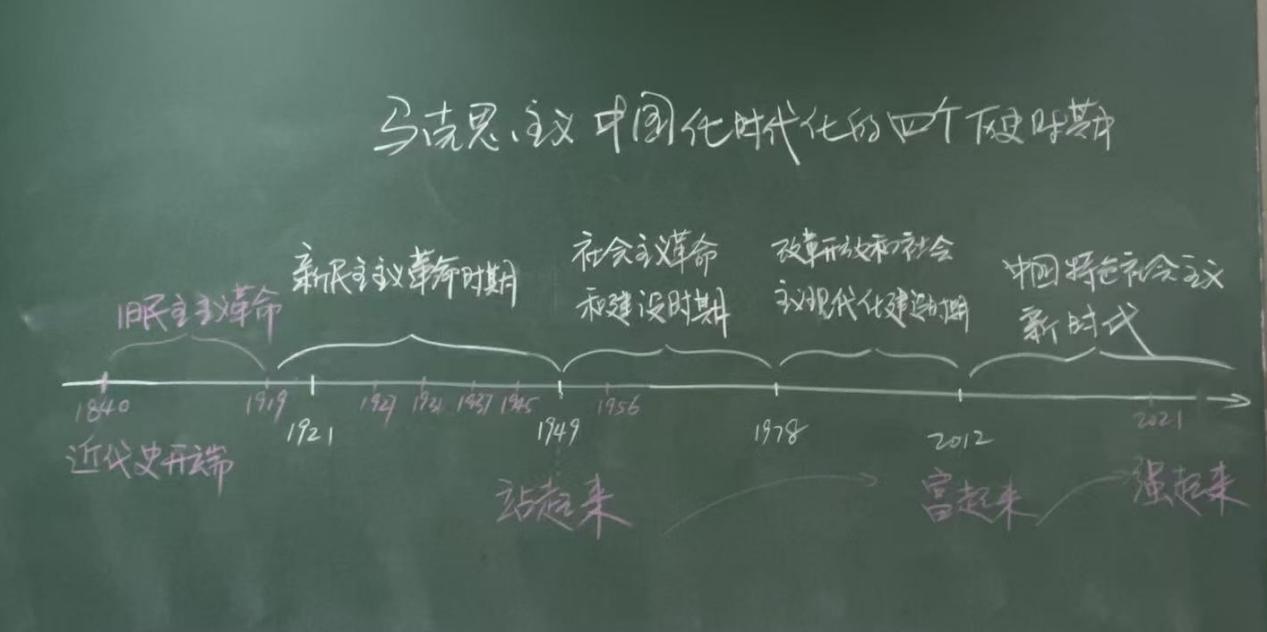 马克思主义中国化时代化的四个历史时期
旧民主主义革命
新民主主义革命时期
社会主义革命
和建设时期
改革开放和社会
主义现代化建设时期
中国特色社会主义
新时代
1840 1919 1921 1927 1931 1937 1945 1949 1956 1978 2012 2021
近代史开端
站起来 富起来 强起来